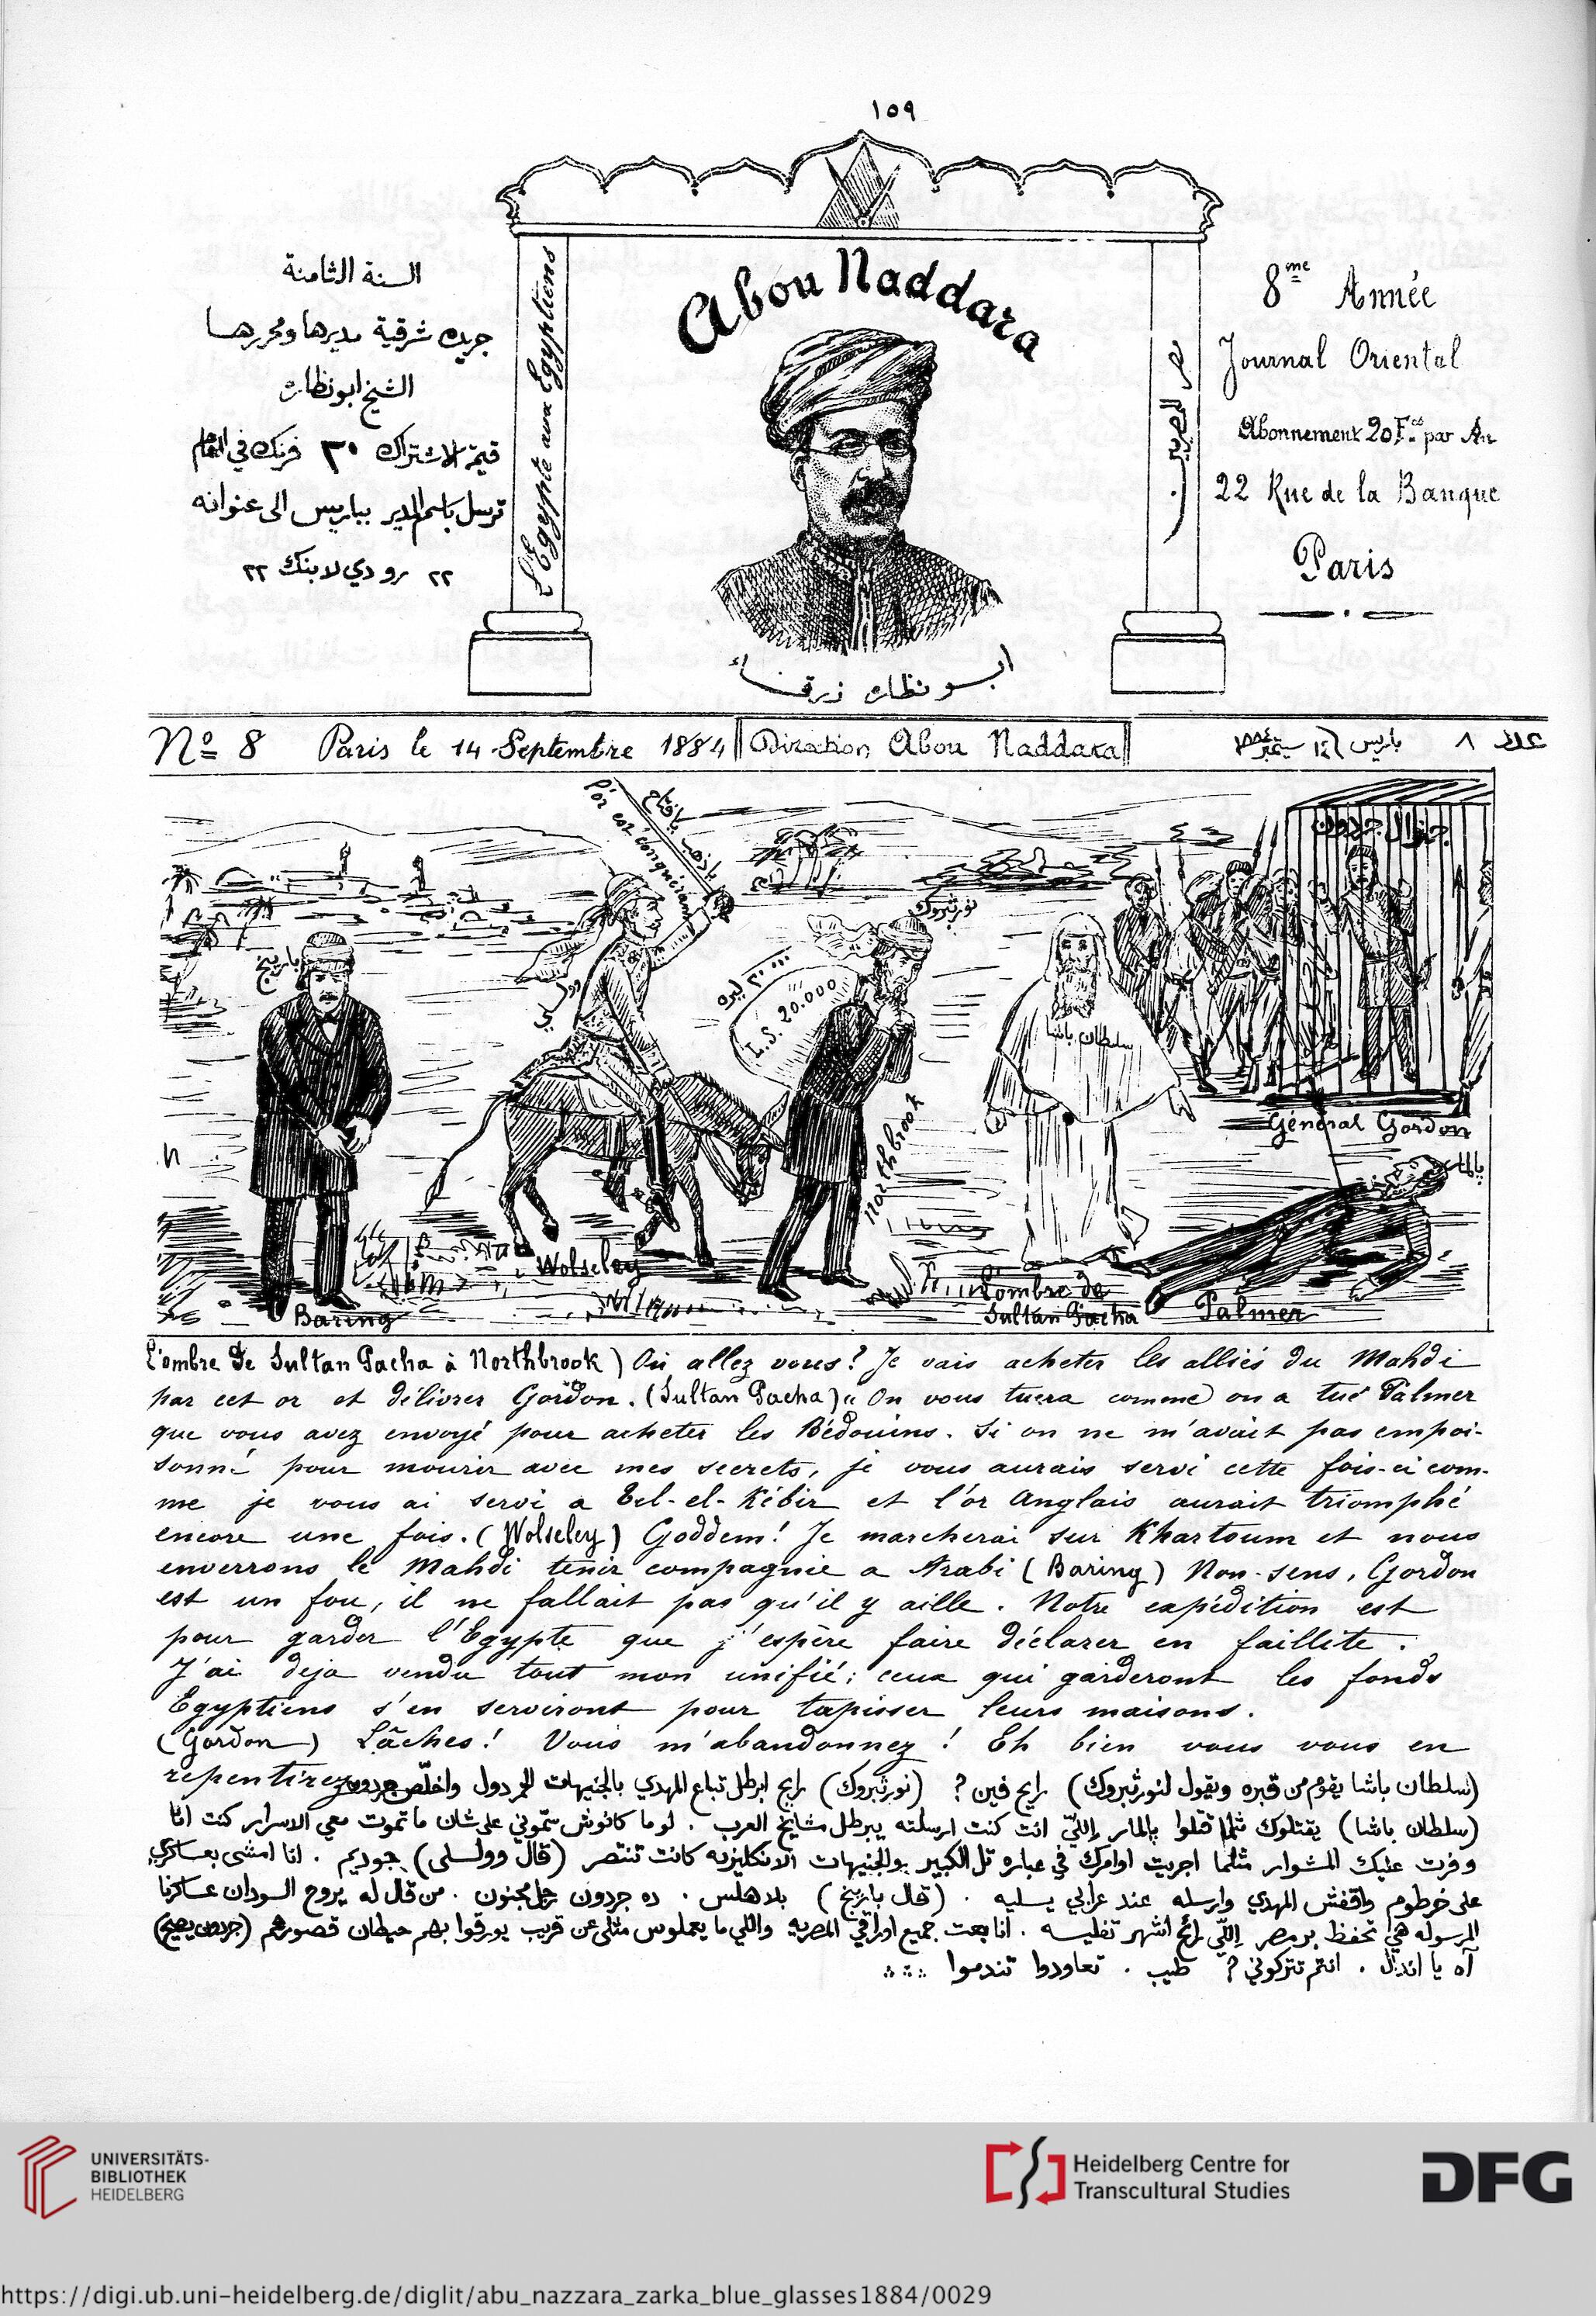 ١٥٩
السنة الثامنة
جريدة شرقية مديرها ومحررها
الشيخ ابو نظارة
قيمة الاشتراك ٣٠ فرنك في العام
ترسل باسم المدير بباريس الى عنوانه
٢٢ رو دي لابنك ٢٢
L'Egypte aux Egyptiens
Abou Naddara
ابو نظاره زرقاء
مصر للمصريين
8me Année
Journal Oriental
Abonnement 20 Fcs par An
22 Rue de la Banque
Paris
No 8 Paris le 14 Septembre 1884
Direction Abou Naddara
عدد ٨ باريس ١٤ سبتمبر
L'or est conquérant
يا ذهب يا فتاح
بارينج
وولسلي
٢٠٠٠٠ ليره
L.S. 20.000
نورثبروك
northbrook
سلطان باشا
جنرال جردون
Général Gordon
پالمار
Baring
Wolseley
L'ombre de
Sultan Pacha
Palmer
L'ombre de Sultan Pacha à Northbrook) Où allez vous? Je vais acheter les alliés du Mahdi
par cet or et délivrer Gordon. (Sultan Pacha) " On vous tuera comme on a tué Palmer
que vous avez envoyé pour acheter les Bédouins. Si on ne m'avait pas empoi-
sonné pour mourir avec mes secrets, je vous aurais servi cette fois-ci com-
me je vous ai servi a Tel-el-Kébir et l'or Anglais aurait triomphé
encore une fois. (Wolseley) Goddem! Je marcherai sur Khartoum et nous
enverrons le Mahdi tenir compagnie a Arabi (Baring) Non-sens, Gordon
est un fou, il ne fallait pas qu'il y aille. Notre expédition est
pour garder l'Egypte que j'espère faire déclarer en faillite.
J'ai deja vendu tout mon unifié; ceux qui garderont les fonds
Egyptiens s'en serviront pour tapisser leurs maisons.
(Gordon) Lâches! Vous m'abandonnez! Eh bien vous vous en
repentirez
(سلطان باشا يقوم من قبره ويقول لنورثبروك) رايح فين ? (نورثبروك) رايح ابرطل تباع المهدي بالجنيهات الجردول واخلّص جردون
(سلطان باشا) يقتلوك مثلما قتلوا پالمار إللّي انت كنت ارسلته يبرطل مشايخ العرب . لو ما كانوش سمّوني على شان ما تموت معي الاسرار كنت انا
وفرت عليك المشوار مثلما اجريت اوامرك في عباره تل الكبير والجنيهات الانكليزيه كانت تنتصر (قال وولسلى) جوديم . انا امشى بعساكري
على خرطوم واقفش المهدي وارسله عند عرابي يسليه . (قال بارينج) بلا هلس . ده جردون رجل مجنون . من قال له يروح السودان عساكرنا
المرسوله هي تحفظ بر مصر إللّي رائح اشهر تفليسه . انا بعت جميع اوراقي المصريه واللي ما يعملوس مثلى عن قريب يورقوا بهم حيطان قصورهم (جردون يصيح)
آه يا اندال . انتم تتركوني ? طيب . تعاودوا تندموا
UNIVERSITÄTS-
BIBLIOTHEK
HEIDELBERG
Heidelberg Centre for
Transcultural Studies
DFG
https://digi.ub.uni-heidelberg.de/diglit/abu_nazzara_zarka_blue_glasses1884/0029